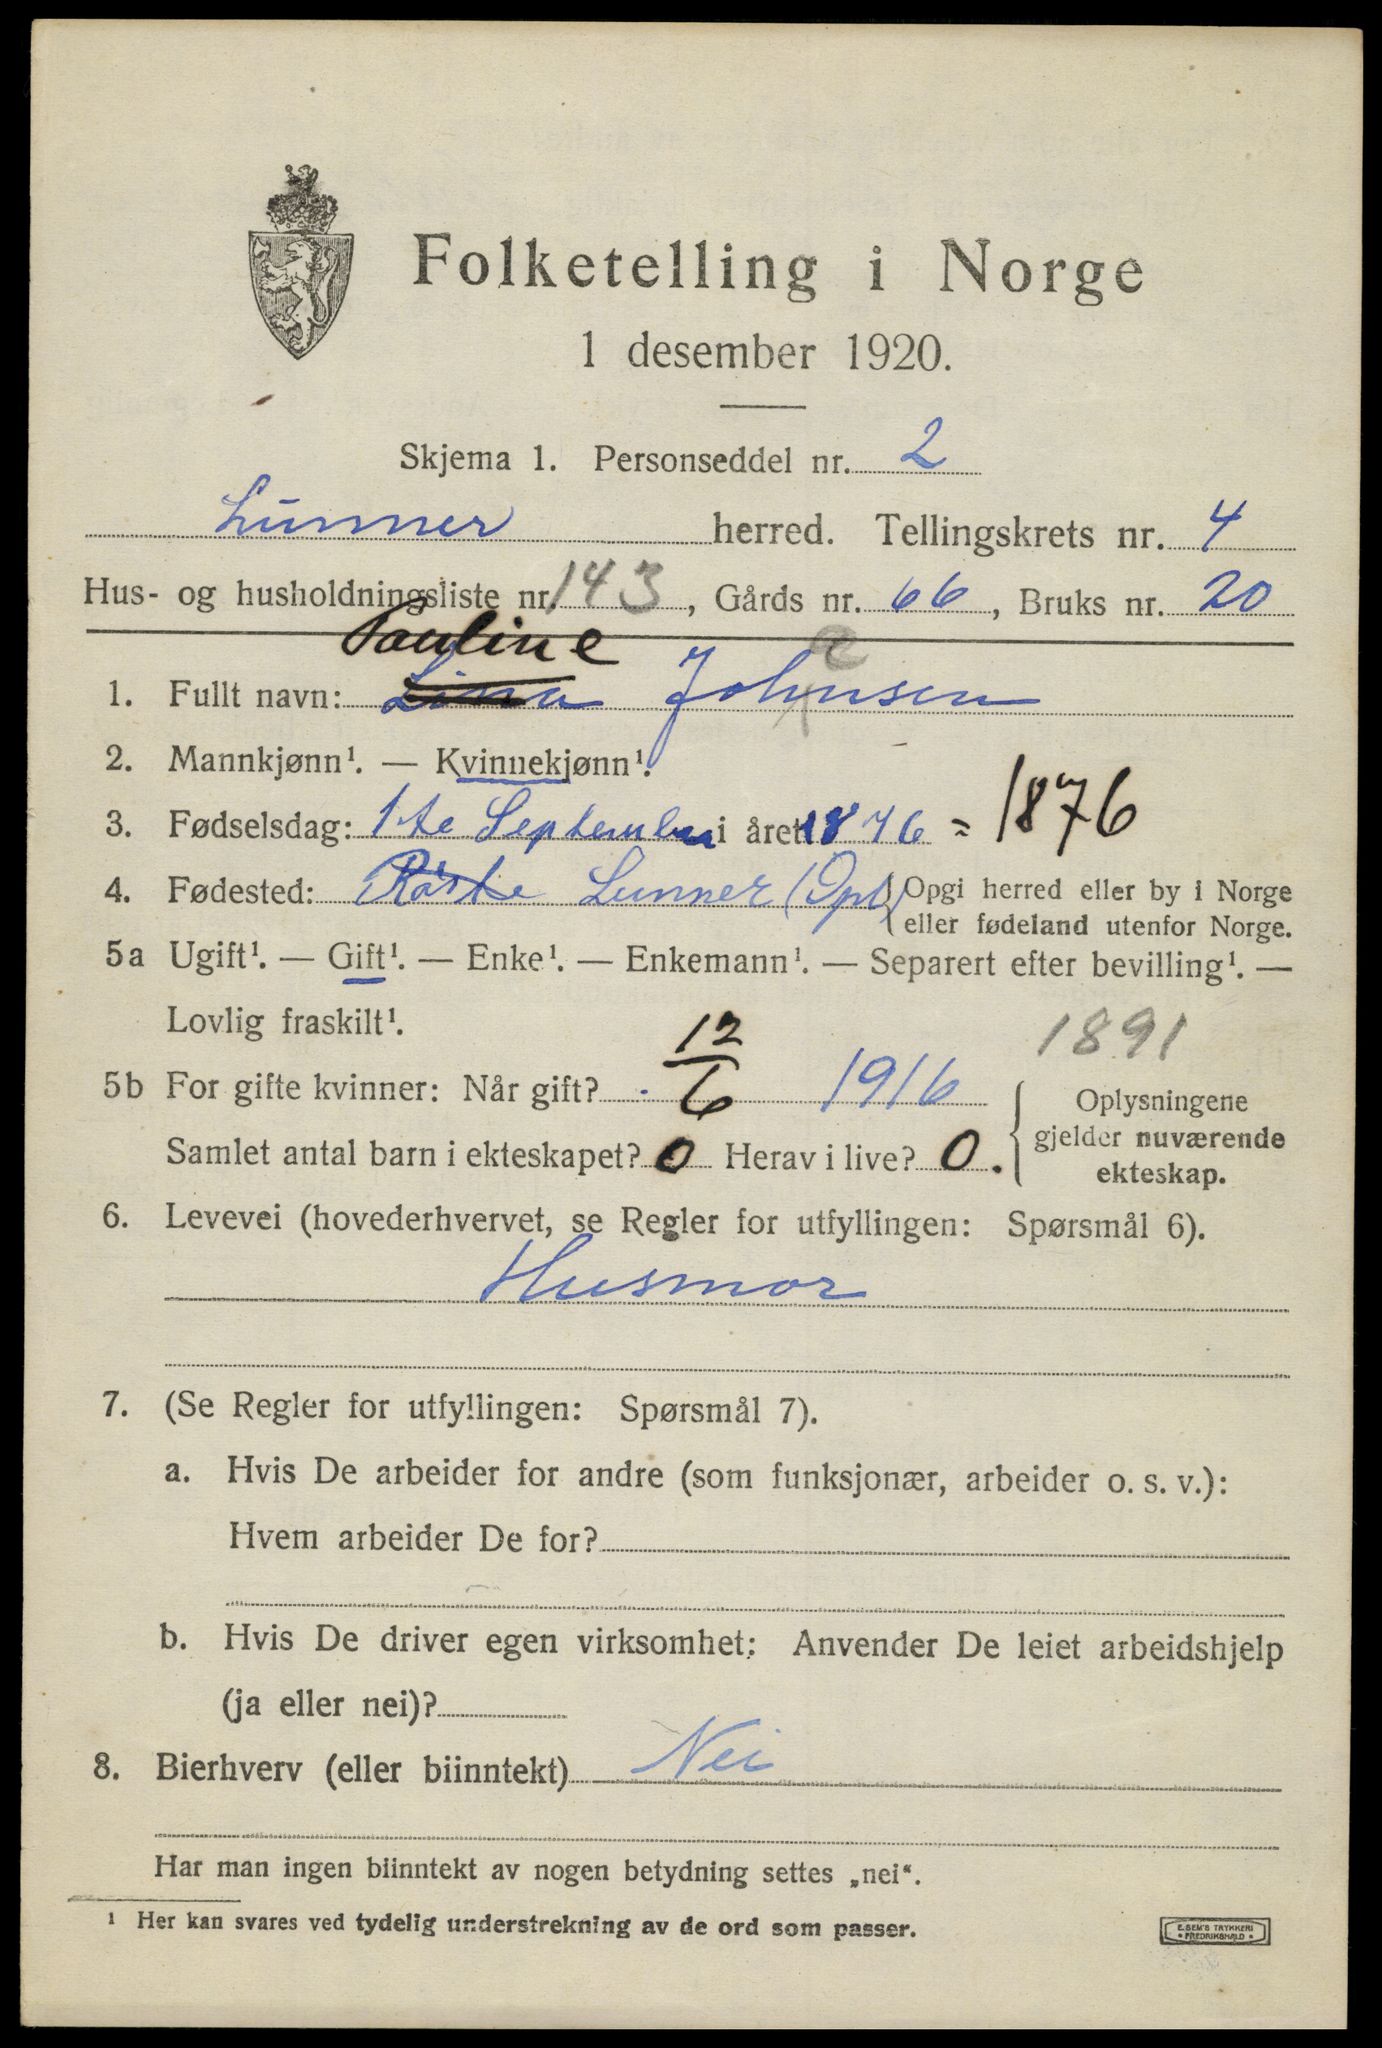 Folketelling i Norge
1 desember 1920.
Skjema 1. Personseddel nr. 2
Lunner herred. Tellingskrets nr. 4
Hus- og husholdningsliste nr. 143, Gårds nr. 66, Bruks nr. 20
Pauline
1. Fullt navn: Lina Johnsen
2. Mannkjønn¹. — Kvinnekjønn¹.
3. Fødselsdag: 1ste September i året 1876 = 1876
4. Fødested: Lunner (Opl) Opgi herred eller by i Norge
eller fødeland utenfor Norge.
5a Ugift¹. — Gift¹. — Enke¹. — Enkemann¹. — Separert efter bevilling¹. —
Lovlig fraskilt¹.
1891
5b For gifte kvinner: Når gift? 12/6 1916 Oplysningene
Samlet antal barn i ekteskapet? 0 Herav i live? 0. gjelder nuværende
ekteskap.
6. Levevei (hovederhvervet, se Regler for utfyllingen: Spørsmål 6).
Husmor
7. (Se Regler for utfyllingen: Spørsmål 7).
a. Hvis De arbeider for andre (som funksjonær, arbeider o. s. v.):
Hvem arbeider De for?
b. Hvis De driver egen virksomhet: Anvender De leiet arbeidshjelp
(ja eller nei)?
8. Bierhverv (eller biinntekt) Nei
Har man ingen biinntekt av nogen betydning settes „nei“.
¹ Her kan svares ved tydelig understrekning av de ord som passer.
E. SEM'S TRYKKERI
• FREDRIKSHALD •